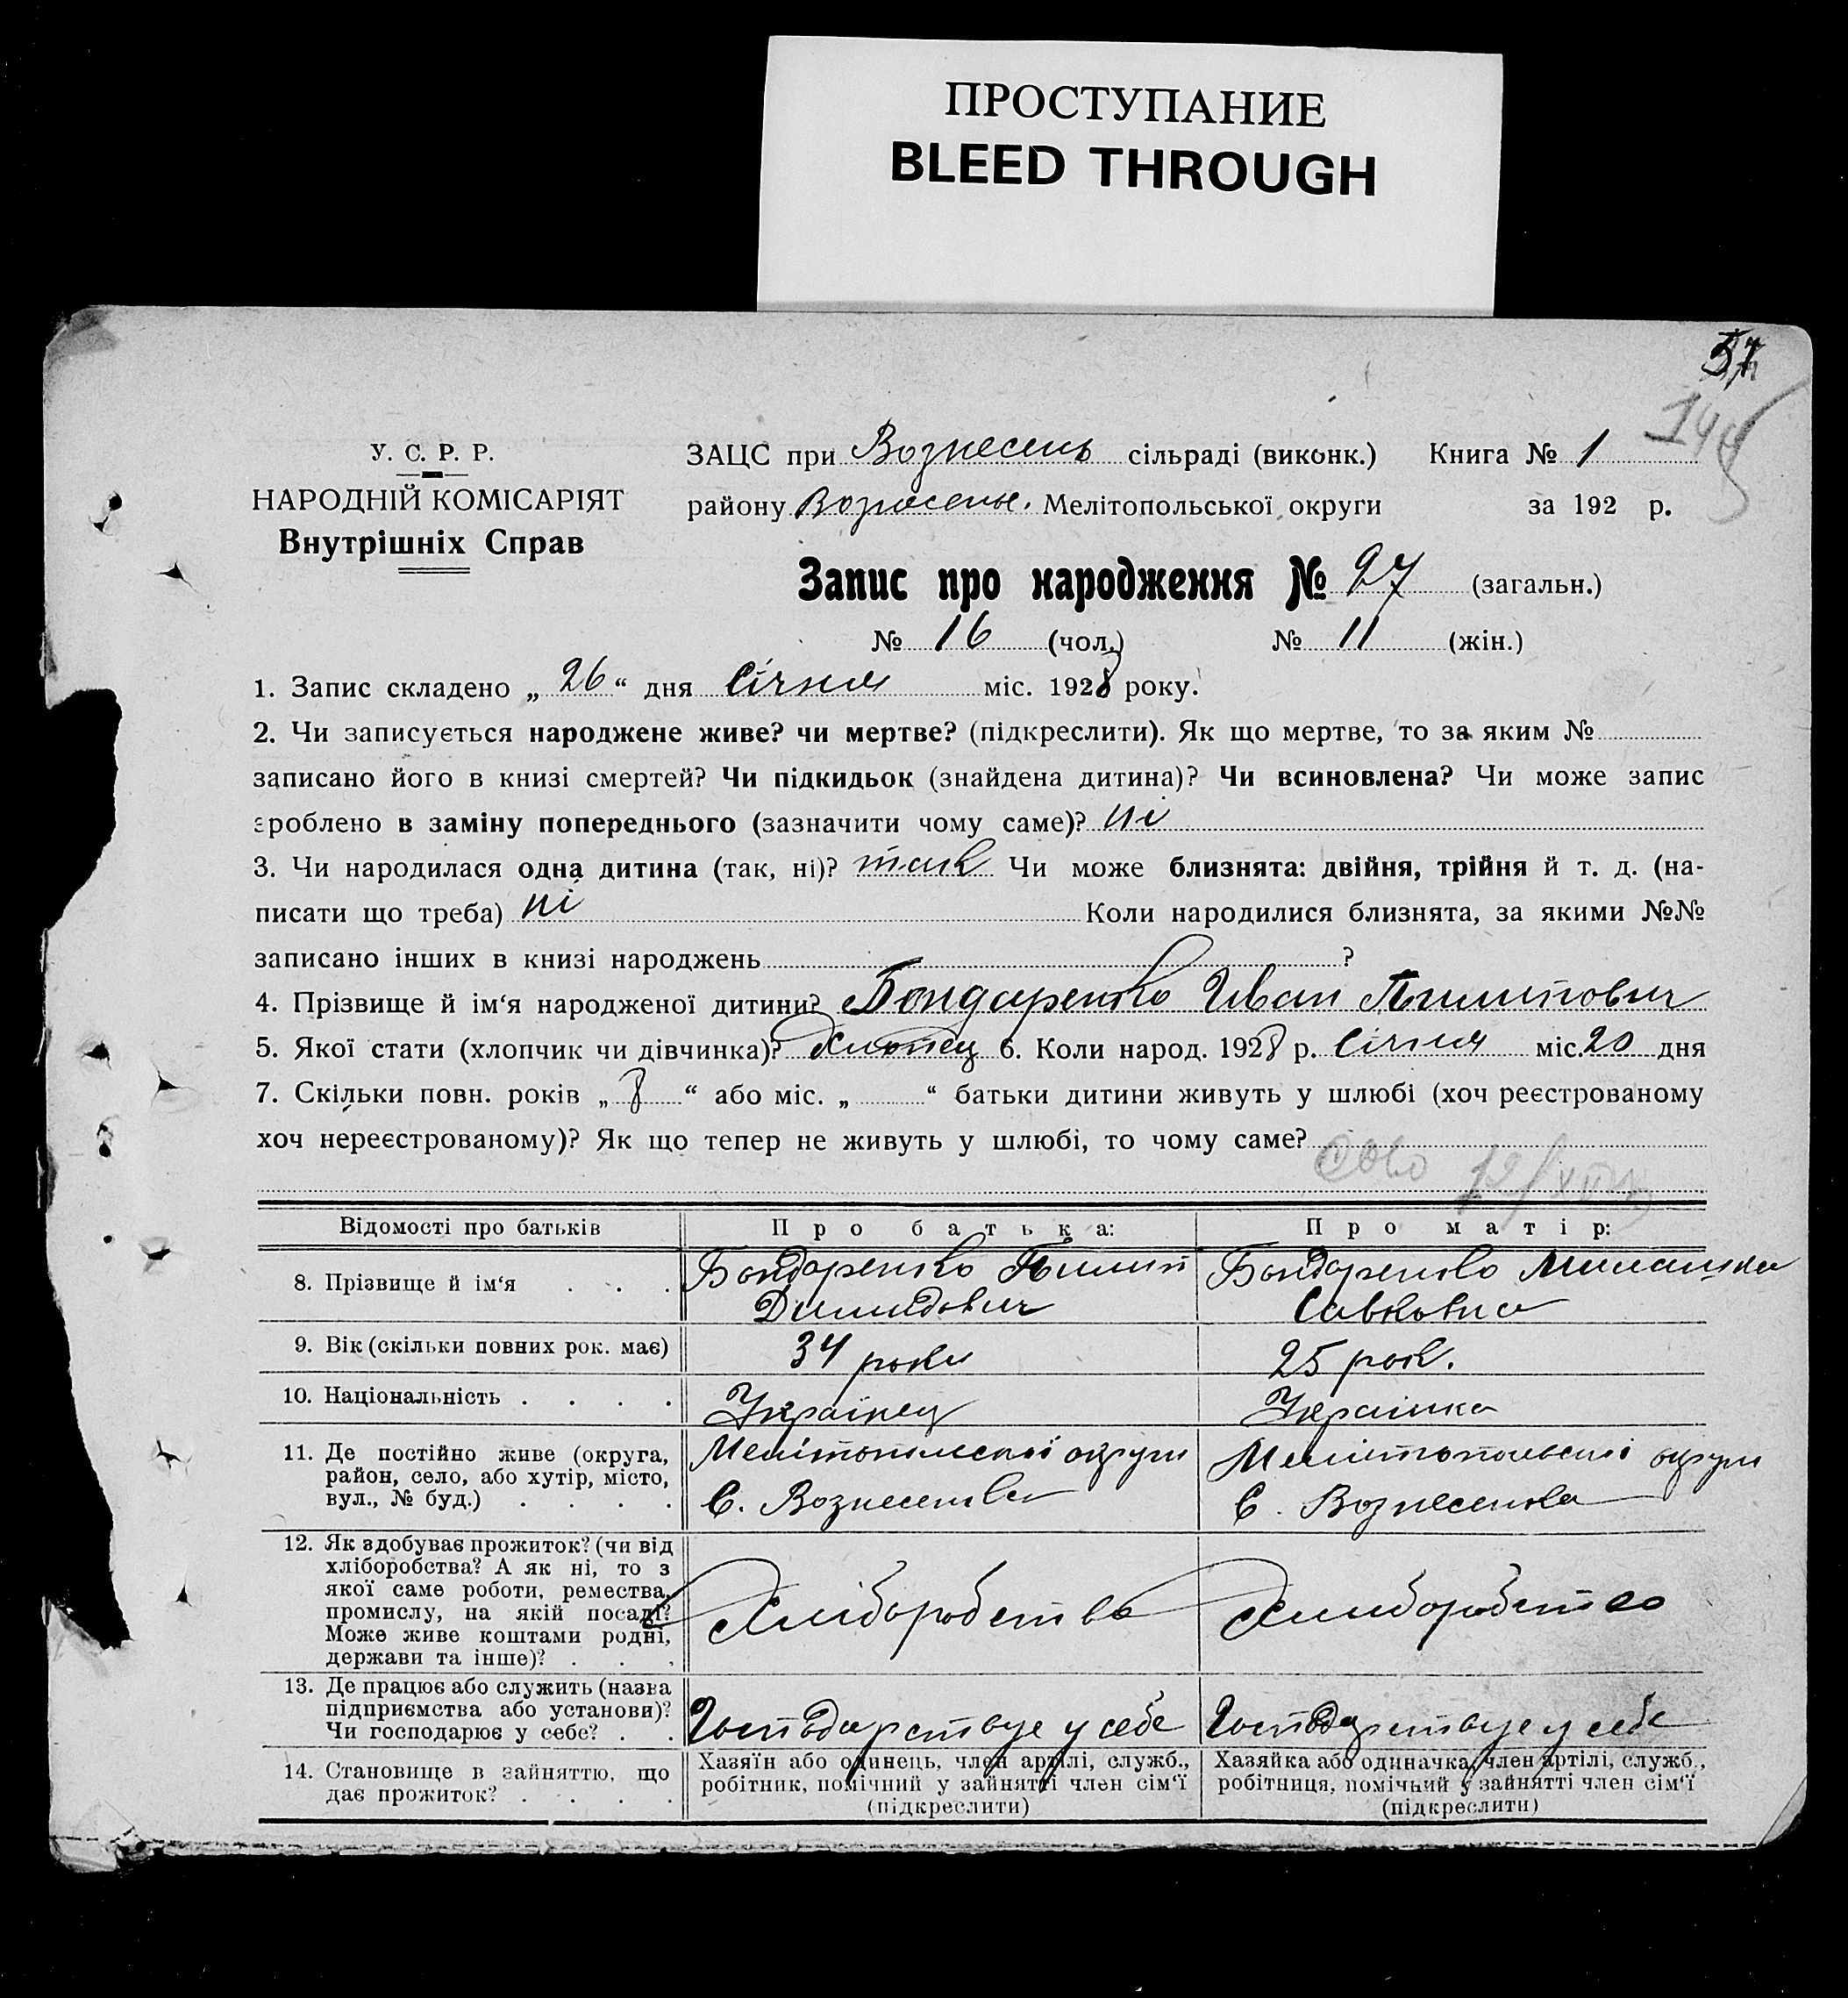 ПРОСТУПАНИЕ
BLEED THROUGH
37
144
У. С. Р. Р.
НАРОДНІЙ КОМІСАРІЯТ
Внутрішніх Справ
ЗАЦС при Вознесень сільраді (виконк.) Книга № 1
району Вознесень. Мелітопольської округи за 192 р.
Запис про народження № 27 (загальн.)
№ 16 (чол.) № 11 (жін.)
1. Запис складено „ 26 “ дня Січня міс. 1928 року.
2. Чи записується народжене живе? чи мертве? (підкреслити). Як що мертве, то за яким №
записано його в книзі смертей? Чи підкидьок (знайдена дитина)? Чи всиновлена? Чи може запис
зроблено в заміну попереднього (зазначити чому саме)? ні
3. Чи народилася одна дитина (так, ні)? так Чи може близнята: двійня, трійня й т. д. (на-
писати що треба) ні Коли народилися близнята, за якими №№
записано інших в книзі народжень ?
4. Прізвище й ім‘я народженої дитини? Бондаренко Иван Пилипович
5. Якої стати (хлопчик чи дівчинка)? Хлопец 6. Коли народ. 1928 р. Січня міс. 20 дня
7. Скільки повн. років „ 8 “ або міс. „ “ батьки дитини живуть у шлюбі (хоч реєстрованому
хоч нереєстрованому)? Як що тепер не живуть у шлюбі, то чому саме?
Відомості про батьків Про батька: Про матір:
8. Прізвище й ім‘я . . . Бондаренко Пилип Бондаренко Миланка
Димидович Савковна
9. Вік (скільки повних рок. має) 34 роки 25 рок.
10. Національність . . . . Українец Українка
11. Де постійно живе (округа, Мелітопольскої округи Мелітопольскої округи
район, село, або хутір, місто,
вул., № буд.) . . . . С. Вознесенка С. Вознесенка
12. Як здобуває прожиток? (чи від
хліборобства? А як ні, то з
якої саме роботи, ремества,
промислу, на якій посаді? Хліборобство Хлиборобство
Може живе коштами родні,
держави та інше)? . . .
13. Де працює або служить (назва
підприємства або установи)?
Чи господарює у себе? . . Господарствує у себе Господарствує у себе
14. Становище в зайняттю, що
дає прожиток? . . . .
Хазяїн або одинець, член артілі, служб.,
робітник, помічний у зайнятті член сім‘ї
(підкреслити)
Хазяйка або одиначка, член артілі, служб.,
робітниця, помічний у зайнятті член сім‘ї
(підкреслити)